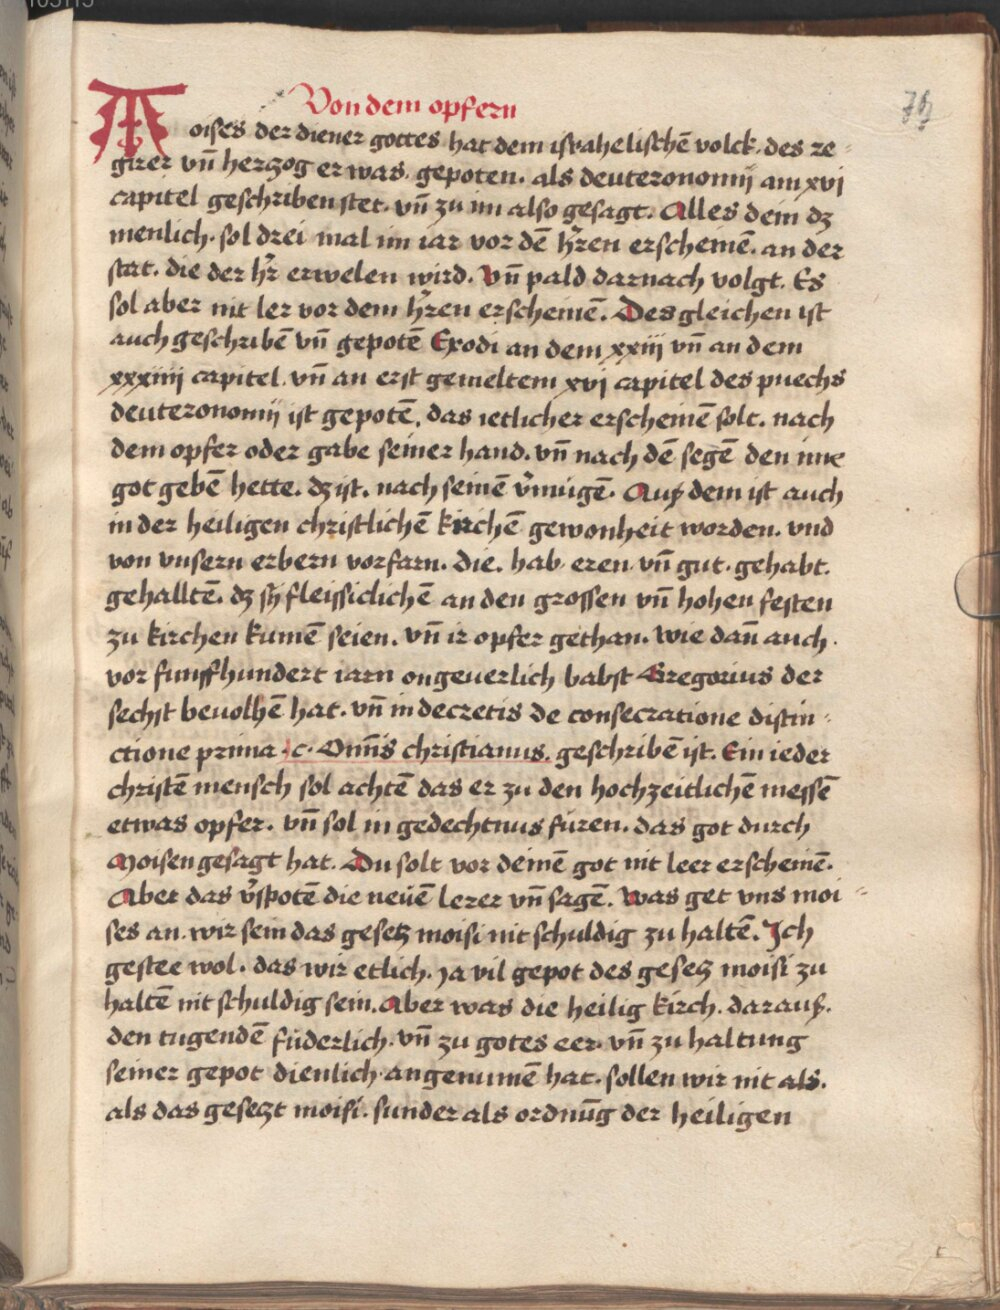 Von dem opfern
Moises der diener gottes hat dem israhelischē volck. des re-
girer vn̄ herzog er was. gepoten. als deuteronomij am xvj
capitel geschriben stet. vn̄ zu im also gesagt. Alles dein dz
menlich. sol drei mal im iar vor dē hr̄en erscheinē. an der
stat. die der hr̄ erwelen wird. Vn̄ pald darnach volgt. Es
sol aber nit ler vor dem hr̄en erscheinē. Des gleichen ist
auch geschribē vn̄ gepotē Exodi an dem xxiij vn̄ an dem
xxxiiij capitel. vn̄ an erst gemeltem xvj capitel des puechs
deuteronomij ist gepotē. das ietlicher erscheinē solt. nach
dem opfer oder gabe seiner hand. vn̄ nach dē segē den ime
got gebē hette. dz ist. nach seinē v̄mügē. Auß dem ist auch
in der heiligen christlichē kirchē gewonheit worden. vnd
von vnsern erbern vorfarn. die. hab. eren. vn̄ gut. gehabt.
gehalltē. dz sy fleissiclichē an den grossen vn̄ hohen festen
zu kirchen kumē seien. vn̄ ir opfer gethan. wie dan̄ auch.
vor funffhundert iarn ongeuerlich babst Gregorius der
sechst beuolhē hat. vn̄ in decretis de consecratione distin-
ctione prima. c. Om̄is christianus. geschribē ist. Ein ieder
christē mensch sol achtē das er zu den hochzeitlichē messē
etwas opfer. vn̄ sol in gedechtnus füren. das got durch
Moisen gesagt hat. Du solt vor deinē got nit leer erscheinē.
Aber das v̄spotē die neüē lerer vn̄ sagē. Was get vns moi-
ses an. wir sein das gesetz moisi nit schuldig zu haltē. Ich
gestee wol. das wir etlich. ja vil gepot des gesetz moisi zu
haltē nit schuldig sein. Aber was die heilig kirch. darauß.
den tugendē füderlich. vn̄ zu gotes eer. vn̄ zu haltung
seiner gepot dienlich. angenumē hat. sollen wir nit als.
als das gesetzt moisi. sunder als ordnūg der heiligen